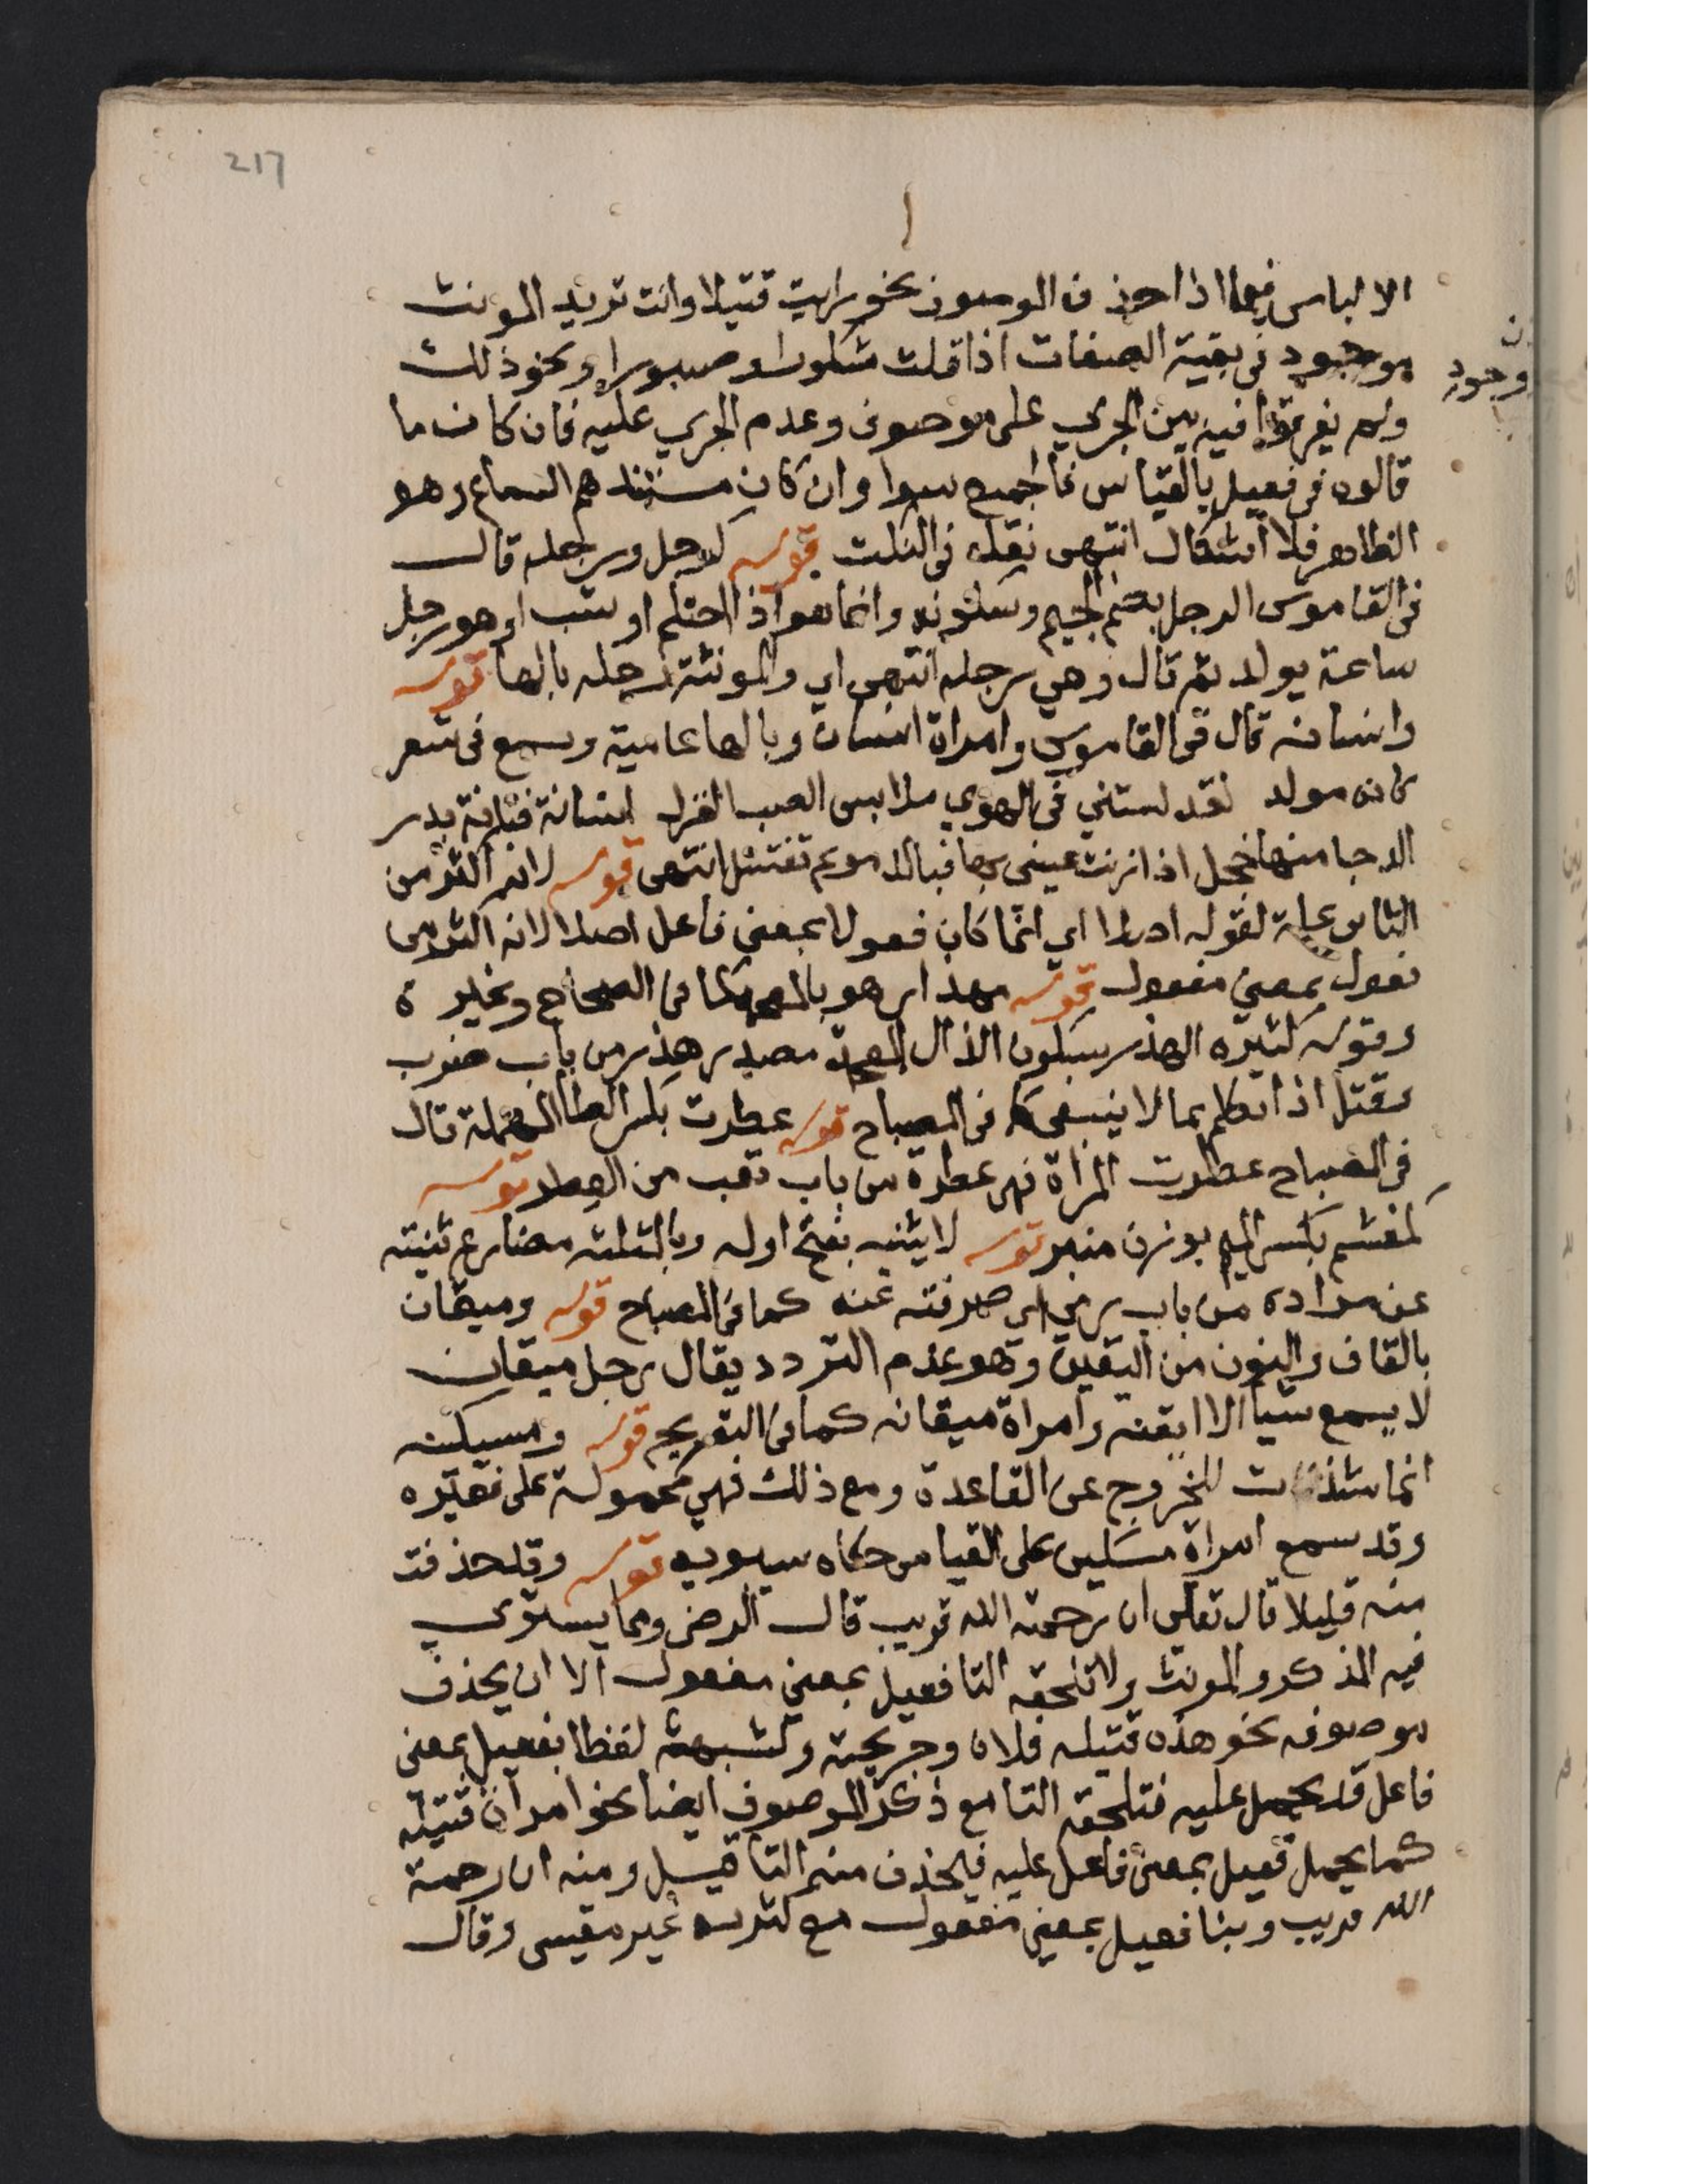 217
الالباس فيما اذا حذف الموصوف نحو رايت قتيلا وانت تريد المونث
موجود فى بقية الصفات اذا قلت شكورا وصبورا ونحو ذلك
وجود
ولم يفرقوا فيه بين الجري على موصوف وعدم الجري عليه فان كان ما
قالوه فى فعيل بالقياس فالجميع سوا وان كان مستندهم السماع وهو
الظاهر فلا اشكال انتهى نقله فى النكت قوله كرجل ورجله قال
فى القاموس الرجل بضم الجيم وسكونه وانما هو اذا احتلم او شب او هو رجل
ساعة يولد ثم قال وهي رجله انتهى اي والمونثة رجله بالها قوله
وانسانه قال فى القاموس وامراة انسان وبالها عامية وسمع فى شعر
كانه مولد لقد كستني فى الهوي ملابس الصب الغزل انسانة فتانة بدر
الدجا منها خجل اذا زنت عيني بها فبالدموع تغتسل انتهى قوله لانه اكثر من
الثانى علة لقوله اصلا اي انما كان فعولا بمعنى فاعل اصلا لانه اكثر من
فعول بمعنى مفعول قوله مهذار هو بالمعجمة كما فى الصحاح وغيره
وقوله كثيره الهذر بسكون الذال المعجمة مصدر هذر من باب ضرب
وقتل اذا تكلم بما لا ينبغى كما فى المصباح قوله عطرت بكسر الطا المهملة قال
فى المصباح عطرت المرأة فهى عطرة من باب تعب من العطر قوله
كمغشم بكسر الميم بوزن منبر قوله لا يثنيه بفتح اوله وبالمثلثه مضارع ثنيته
عن مراده من باب رمي اي صرفته عنه كما فى المصباح قوله وميقان
بالقاف والنون من اليقين وهو عدم التردد يقال رجل ميقان
لا يسمع شيا الا ايقنه وامراة ميقانه كما فى التصريح قوله ومسيكنه
انما شذت للخروج عن القاعدة ومع ذلك فهى محمولة على فقيره
وقد سمع امراة مسكين على القياس حكاه سيبويه قوله وقد حذفت
منه قليلا قال تعالى ان رحمت الله قريب قال الرضى ومما يستوي
فيه المذكر والمونث ولا تلحقه التا فعيل بمعنى مفعول الا ان يحذف
موصوفه نحو هذه قتيله فلان وجريحته ولشبهه لفظا بفعيل بمعنى
فاعل قد يحمل عليه فتلحقه التا مع ذكر الموصوف ايضا نحو امراة قتيله
كما يحمل فعيل بمعنى فاعل عليه فيحذف منه التا قيل ومنه ان رحمة
الله قريب وبنا فعيل بمعنى مفعول مع كثرته غير مقيس وقال